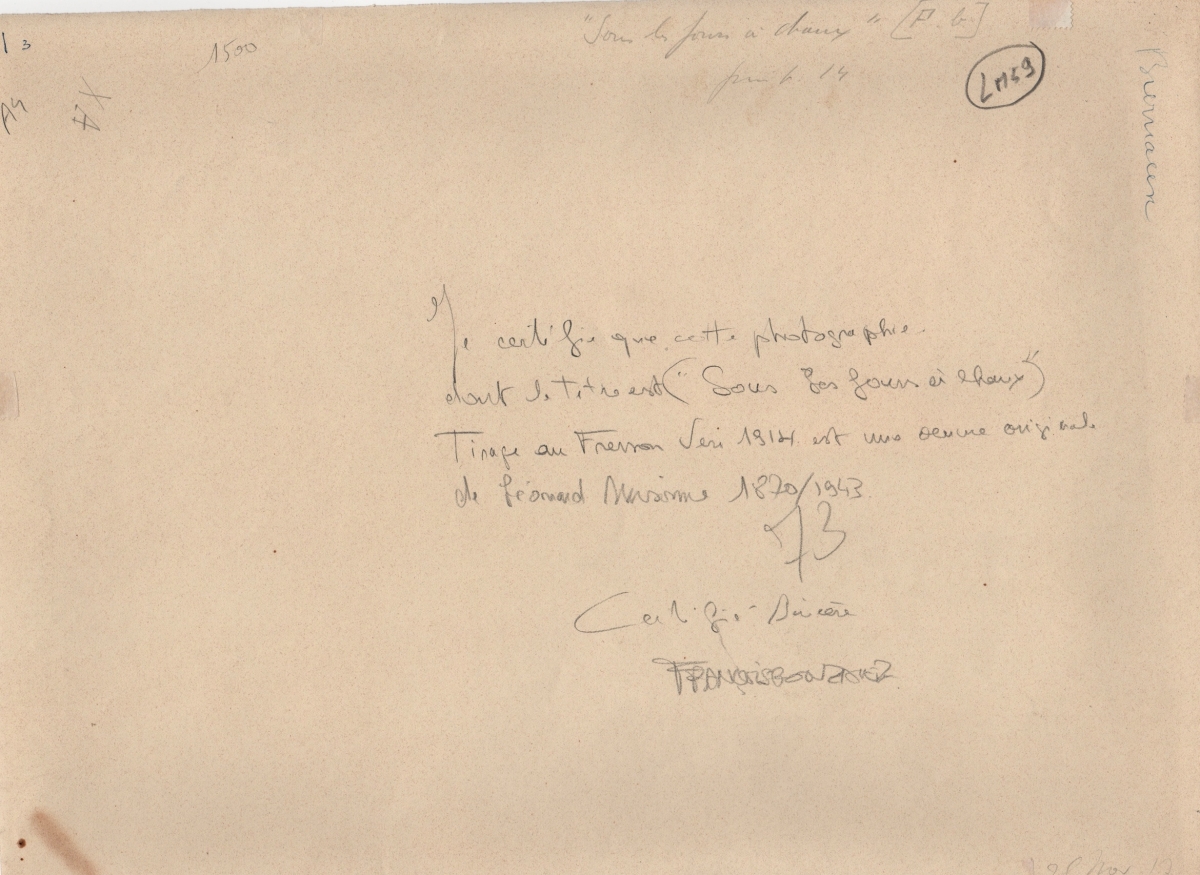 3
1500
"Sous les fours à chaux" [P. b.]
14
LM59
A4
XA
Je certifie que cette photographie
dont le titre est ("Sous Les fours à chaux")
Tirage au Fresson Vers 1914 est une oeuvre originale
de Léonard Misonne 1870/1943
73
Certifié Sincère